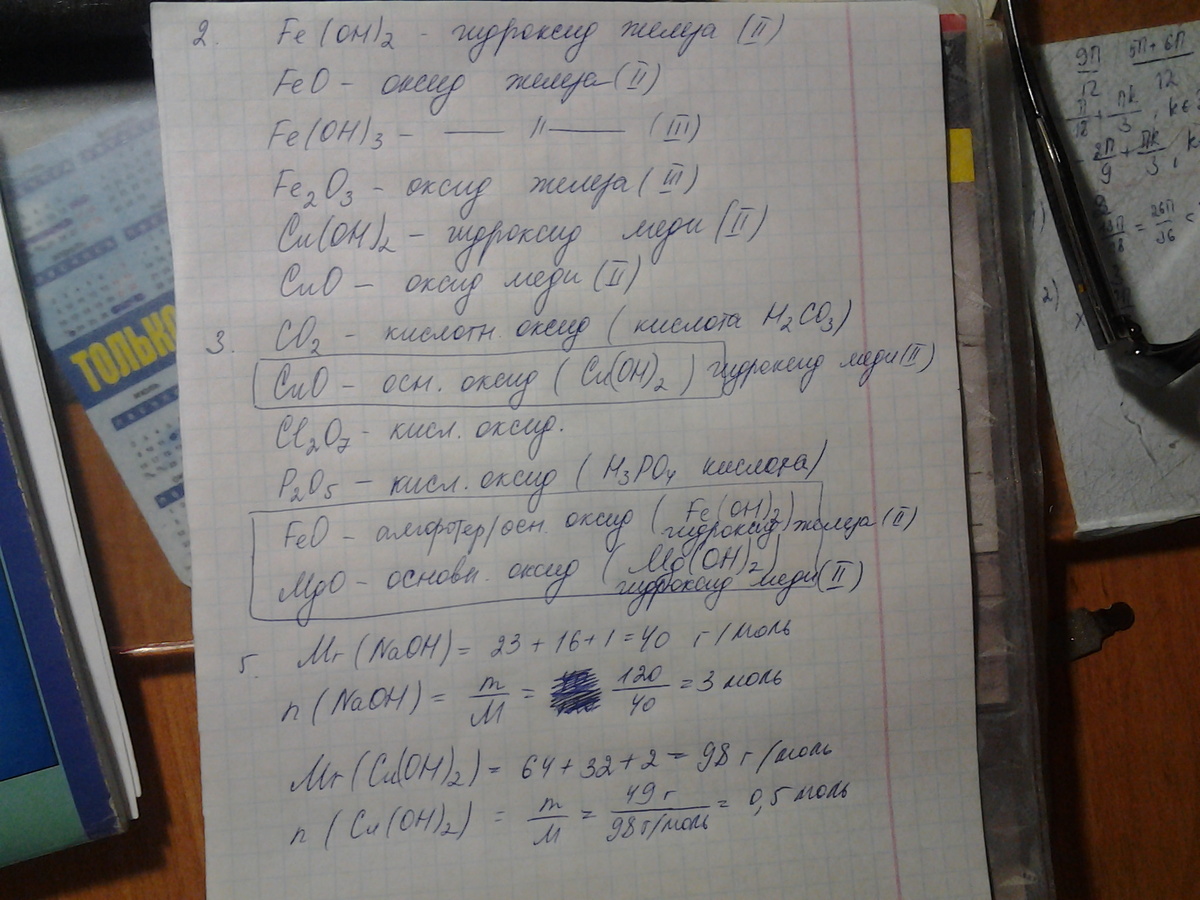 2. Fe(OH)₂ - гидроксид железа (II)
FeO - оксид железа (II)
Fe(OH)₃ - —— || —— (III)
Fe₂O₃ - оксид железа (III)
Cu(OH)₂ - гидроксид меди (II)
CuO - оксид меди (II)
3. CO₂ - кислотн. оксид (кислота H₂CO₃)
CuO - осн. оксид (Cu(OH)₂) гидроксид меди (II)
Cl₂O₇ - кисл. оксид.
P₂O₅ - кисл. оксид (H₃PO₄ кислота)
FeO - амфотер/осн. оксид (Fe(OH)₂)
гидроксид железа (II)
MgO - основн. оксид (Mg(OH)₂)
гидроксид меди (II)
5. Mr (NaOH) = 23 + 16 + 1 = 40 г/моль
n (NaOH) = m/M = 120/40 = 3 моль
Mr (Cu(OH)₂) = 64 + 32 + 2 = 98 г/моль
n (Cu(OH)₂) = m/M = 49 г/98 г/моль = 0,5 моль
ТОЛЬКО
9П/12 5П+6П/12
П/18 + Пk/3, k∈
2П/9 + Пk/3, k
= 26П/36
2)